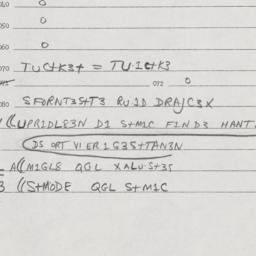 060 0
0
050 0
070 TUC+K3+ = TU.1C+K3
072 0
080 SFORNT3S+T3 RU1D DRAJC3X
((UPRIDLE3N D1 S+M1C F1ND3 HANT.
DS ORT VI ER1G3S+TAN3N
A((M1GLS QGL XALU.S+3S
((S+MODE QGL S+M1C